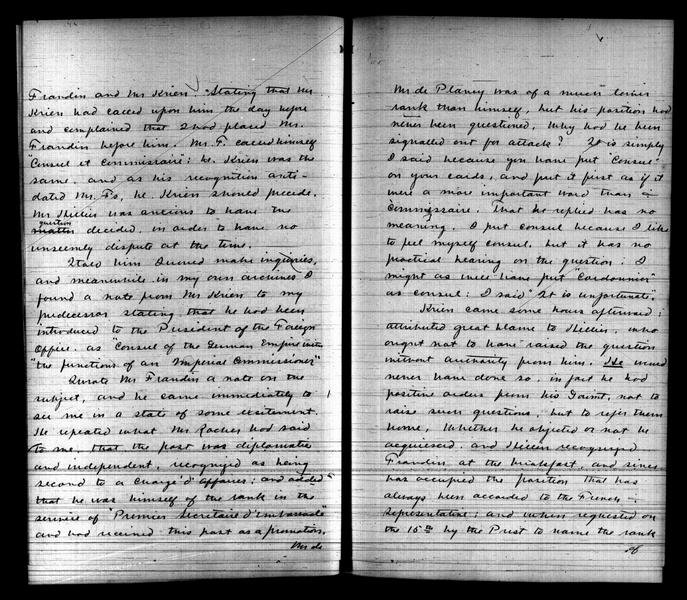 Frandin and Mr Krien. Stating that Mr
Krien had called upon him the day before
and complained that I had placed Mr.
Frandin before him. Mr. F. called himself
"Consul et Commissaire"; he, Krien was the
same. and as his recognition anti-
dated Mr. F's, he, Krien should precede.
Mr Hillier was anxious to have the
question
matter decided, in order to have no
unseemly dispute at the time.
I told him I would make inquiries,
and meanwhile in my own archives I
found a note from Mr Krien to my
predecessor stating that he had been
introduced to the President of the Foreign
Office. as "Consul of the German Empire with
"the functions of an Imperial Commissioner"
I wrote Mr Frandin a note on the
subject, and he came immediately to
see me in a state of some excitement.
He repeated what Mr Rocher had said
to me, that the post was diplomatic
and independent, recognized as being
second to a Chargé d'Affaires; and added
that he was himself of the rank in the
service of "Premier Secretaire d'Ambassade"
and had received this post as a promotion.
Mr de
Mr de Plancy was of a much lower
rank than himself, but his position had
never been questioned, Why had he been
signalled out for attack? It is simply
I said because you have put "Consul"
on your cards, and put it first as if it
were a more important word than
Commissaire. That he replied has no
meaning. I put consul because I like
to feel myself consul, but it has no
practical bearing on the question: I
might as well have put "Cordonnier"
as consul: I said "It is unfortunate.
Krien came some hours afterward;
attributed great blame to Hillier, who
ought not to have raised the question
without authority from him. He would
never have done so, in fact he had
positive orders from his Govmt, not to
raise such questions, but to refer them
home, Whether he objected or not he
acquiesced. and Hillier recognized
Frandin, at the breakfast, and since
has occupied the position that has
always been accorded to the French
Representative; and when requested on
the 15th by the Prest to name the rank
of